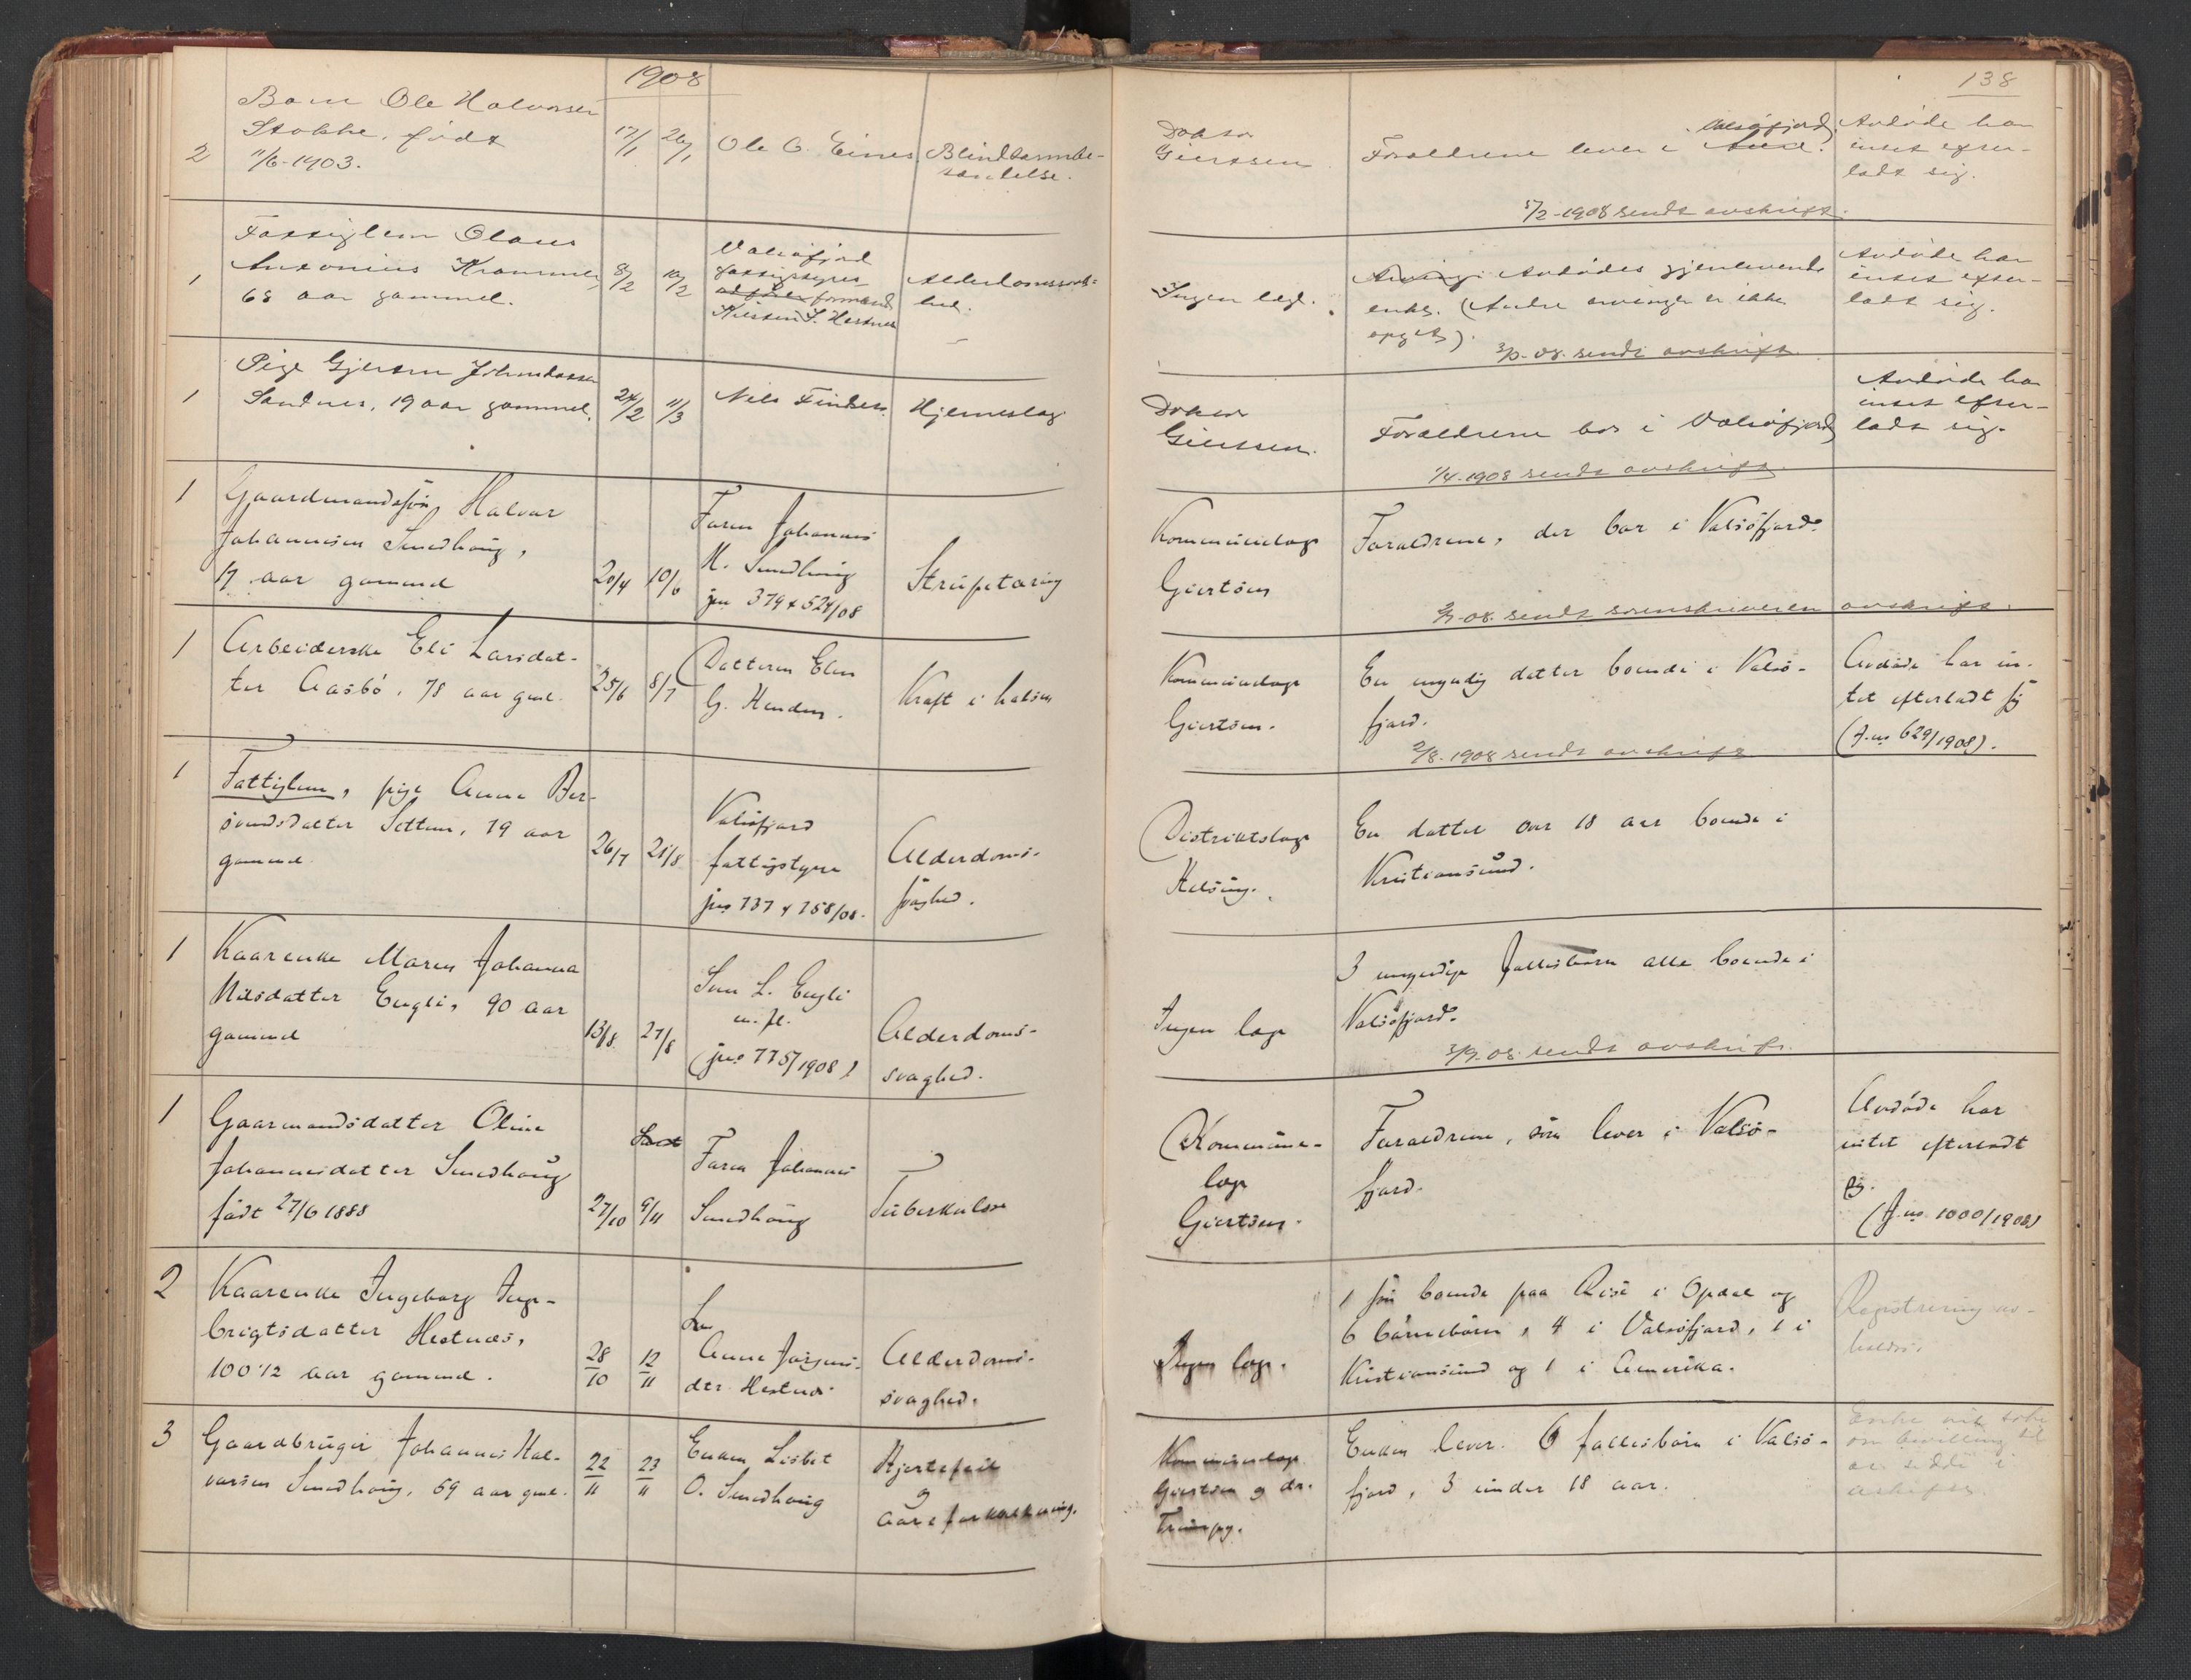 1908
138
Barn Ole Halvorsen
Stokke, født
2
11/6-1903.
17/1
26/1
Ole O. Eines
Blindtarmbe-
tændelse.
Doktor
Giertsen
Forældrene lever i Aure.
Valsøfjord
Avdøde har
intet efter-
ladt sig.
5/2-1908 sendt avskrift.
1
Fattiglem Olaus
Antonius Krammer,
68 aar gammel.
8/2
10/2
Valsøfjord
fattigstyres
ordfører formand
S. Hestnes
Alderdomssvak-
hed.
Ingen læge.
Avdødes gjenlevende
enke. (Andre arvinger er ikke
opgit).
3/3-08. sendt avskrift.
Avdøde har
intet efter-
ladt sig.
1
Pige Gjertru Johnsdatter
Sandnes, 19 aar gammel.
24/2
11/3
Nils
Hjerneslag
Doktor
Giertsen.
Forældrene bor i Valsøfjord
1/4-1908 sendt avskrift.
Avdøde har
intet efter-
ladt sig.
1
Gaardmandssøn Halvar
Johannesen Smedhaug,
17 aar gammel
20/4
10/6
Faren Johannes
H. Smedhaug
jno 379 & 524/08
Strupetæring
Kommunelæge
Giertsen
Forældrene, der bor i Valsøfjord.
2/7-08. sendt sorenskriveren avskrift.
1
Arbeiderske Eli Larsdat-
ter Aasbø, 78 aar gml.
25/6
8/7
Datteren Elen
G. Henden.
Kræft i halsen
Kommunelæge
Giertsen.
En myndig datter boende i Valsø-
fjord.
2/8-1908 sendt avskrift
Avdøde har in-
tet efterladt sig
(J.no 629/1908).
1
Fattiglem, pige Anne Ber-
svendsdatter Settem, 79 aar
gammel
26/7
21/8
Valsøfjord
fattigstyre
jno 737 & 758/08.
Alderdoms-
svaghed.
Distriktslæge
Helsing.
En datter over 18 aar boende i
Kristiansund.
1
Kaarenke Maren Johanna
Nilsdatter Engli, 90 aar
gammel
13/8
27/8
Sven L. Engli
m. fl.
(jno 775/1908)
Alderdoms-
svaghed.
Ingen læge
3 myndige fællesbørn alle boende i
Valsøfjord.
3/9-08. sendt avskrift.
1
Gaarmandsdatter Oline
Johannesdatter Smedhaug
født 27/6 1888
27/10
9/11
Faren Johannes
Smedhaug
Tuberkulose
Kommune-
læge
Giertsen.
Forældrene, som lever i Valsø-
fjord.
Avdøde har
intet efterladt
sig.
(J.no 1000/1908)
2
Kaarenke Ingeborg Inge-
brigtsdatter Hestnes,
100 1/2 aar gammel.
28/10
12/11
Anne Jørgens-
dtr. Hestnes
Alderdoms-
svaghed.
Ingen læge.
1 søn boende paa Rise i Opdal og
6 børnebørn, 4 i Valsøfjord, 1 i
Kristiansund og 1 i Amerika.
Registrering av-
holdes.
3
Gaardbruger Johannes Hal-
varsen Smedhaug, 59 aar gml.
22/11
23/11
Enken Lisbet
O. Smedhaug
Hjertefeil
og
aareforkalkning.
Kommunelæge
Giertsen og dr.
Enken lever. 6 fællesbørn i Valsø-
fjord, 3 under 18 aar.
Enke vil søke
om bevilling til
at sidde i
uskiftet